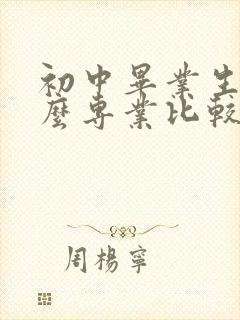 初中畢業生
麼專業比較
周楊寧